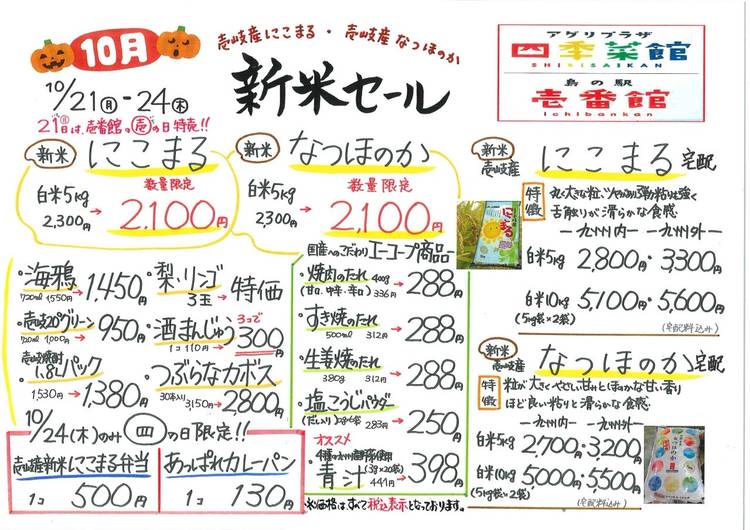 10月
10/21(月)-24(木)
21日は、壱番館の壱の日特売!!
壱岐産にこまる・壱岐産なつほのか
新米セール
アグリプラザ
四季菜館
SHIKISAIKAN
島の駅
壱番館
Ichibankan
新米 にこまる
白米5kg 数量限定
2,300→2,100円
新米 なつほのか
白米5kg 数量限定
2300→2,100円
・海鴉
720ml 1,550円→1,450円
・壱岐20°グリーン
720ml 1,000円→950円
壱岐焼酎
・1.8Lパック
1,530円→1380円
・梨・リンゴ
3玉→特価
・酒まんじゅう 3コで
1コ110円→300円
・つぶらなカボス
30本入り3,150円→2800円
10/24(木)のみ 四の日限定!!
壱岐産新米にこまる弁当
1コ 500円
あっぱれカレーパン
1コ 130円
国産へのこだわり エーコープ商品
・焼肉のたれ 400g
(甘口・中辛・辛口) 336円→288円
・すき焼のたれ
500ml 312円→288円
・生姜焼のたれ
380g 312円→288円
・塩こうじパウダー
288円→250円
オススメ
・青汁 (3g×20袋)
441円→398円
※価格は、すべて税込表示となっております。
新米
壱岐産 にこまる 宅配
特徴 丸く大きな粒、ツヤがあり、弾力、粘りも強く
舌触りが滑らかな食感
―九州内― ―九州外―
白米5kg 2,800円・3,300円
白米10kg 5,100円・5,600円
(5kg袋×2袋) (宅配料込み)
新米
壱岐産 なつほのか 宅配
特徴 粒が大きくやさしい甘みとほのかな甘い香り
ほど良い粘りと滑らかな食感
―九州内― ―九州外―
白米5kg 2,700円・3,200円
白米10kg 5,000円・5,500円
(5kg袋×2袋) (宅配料込み)